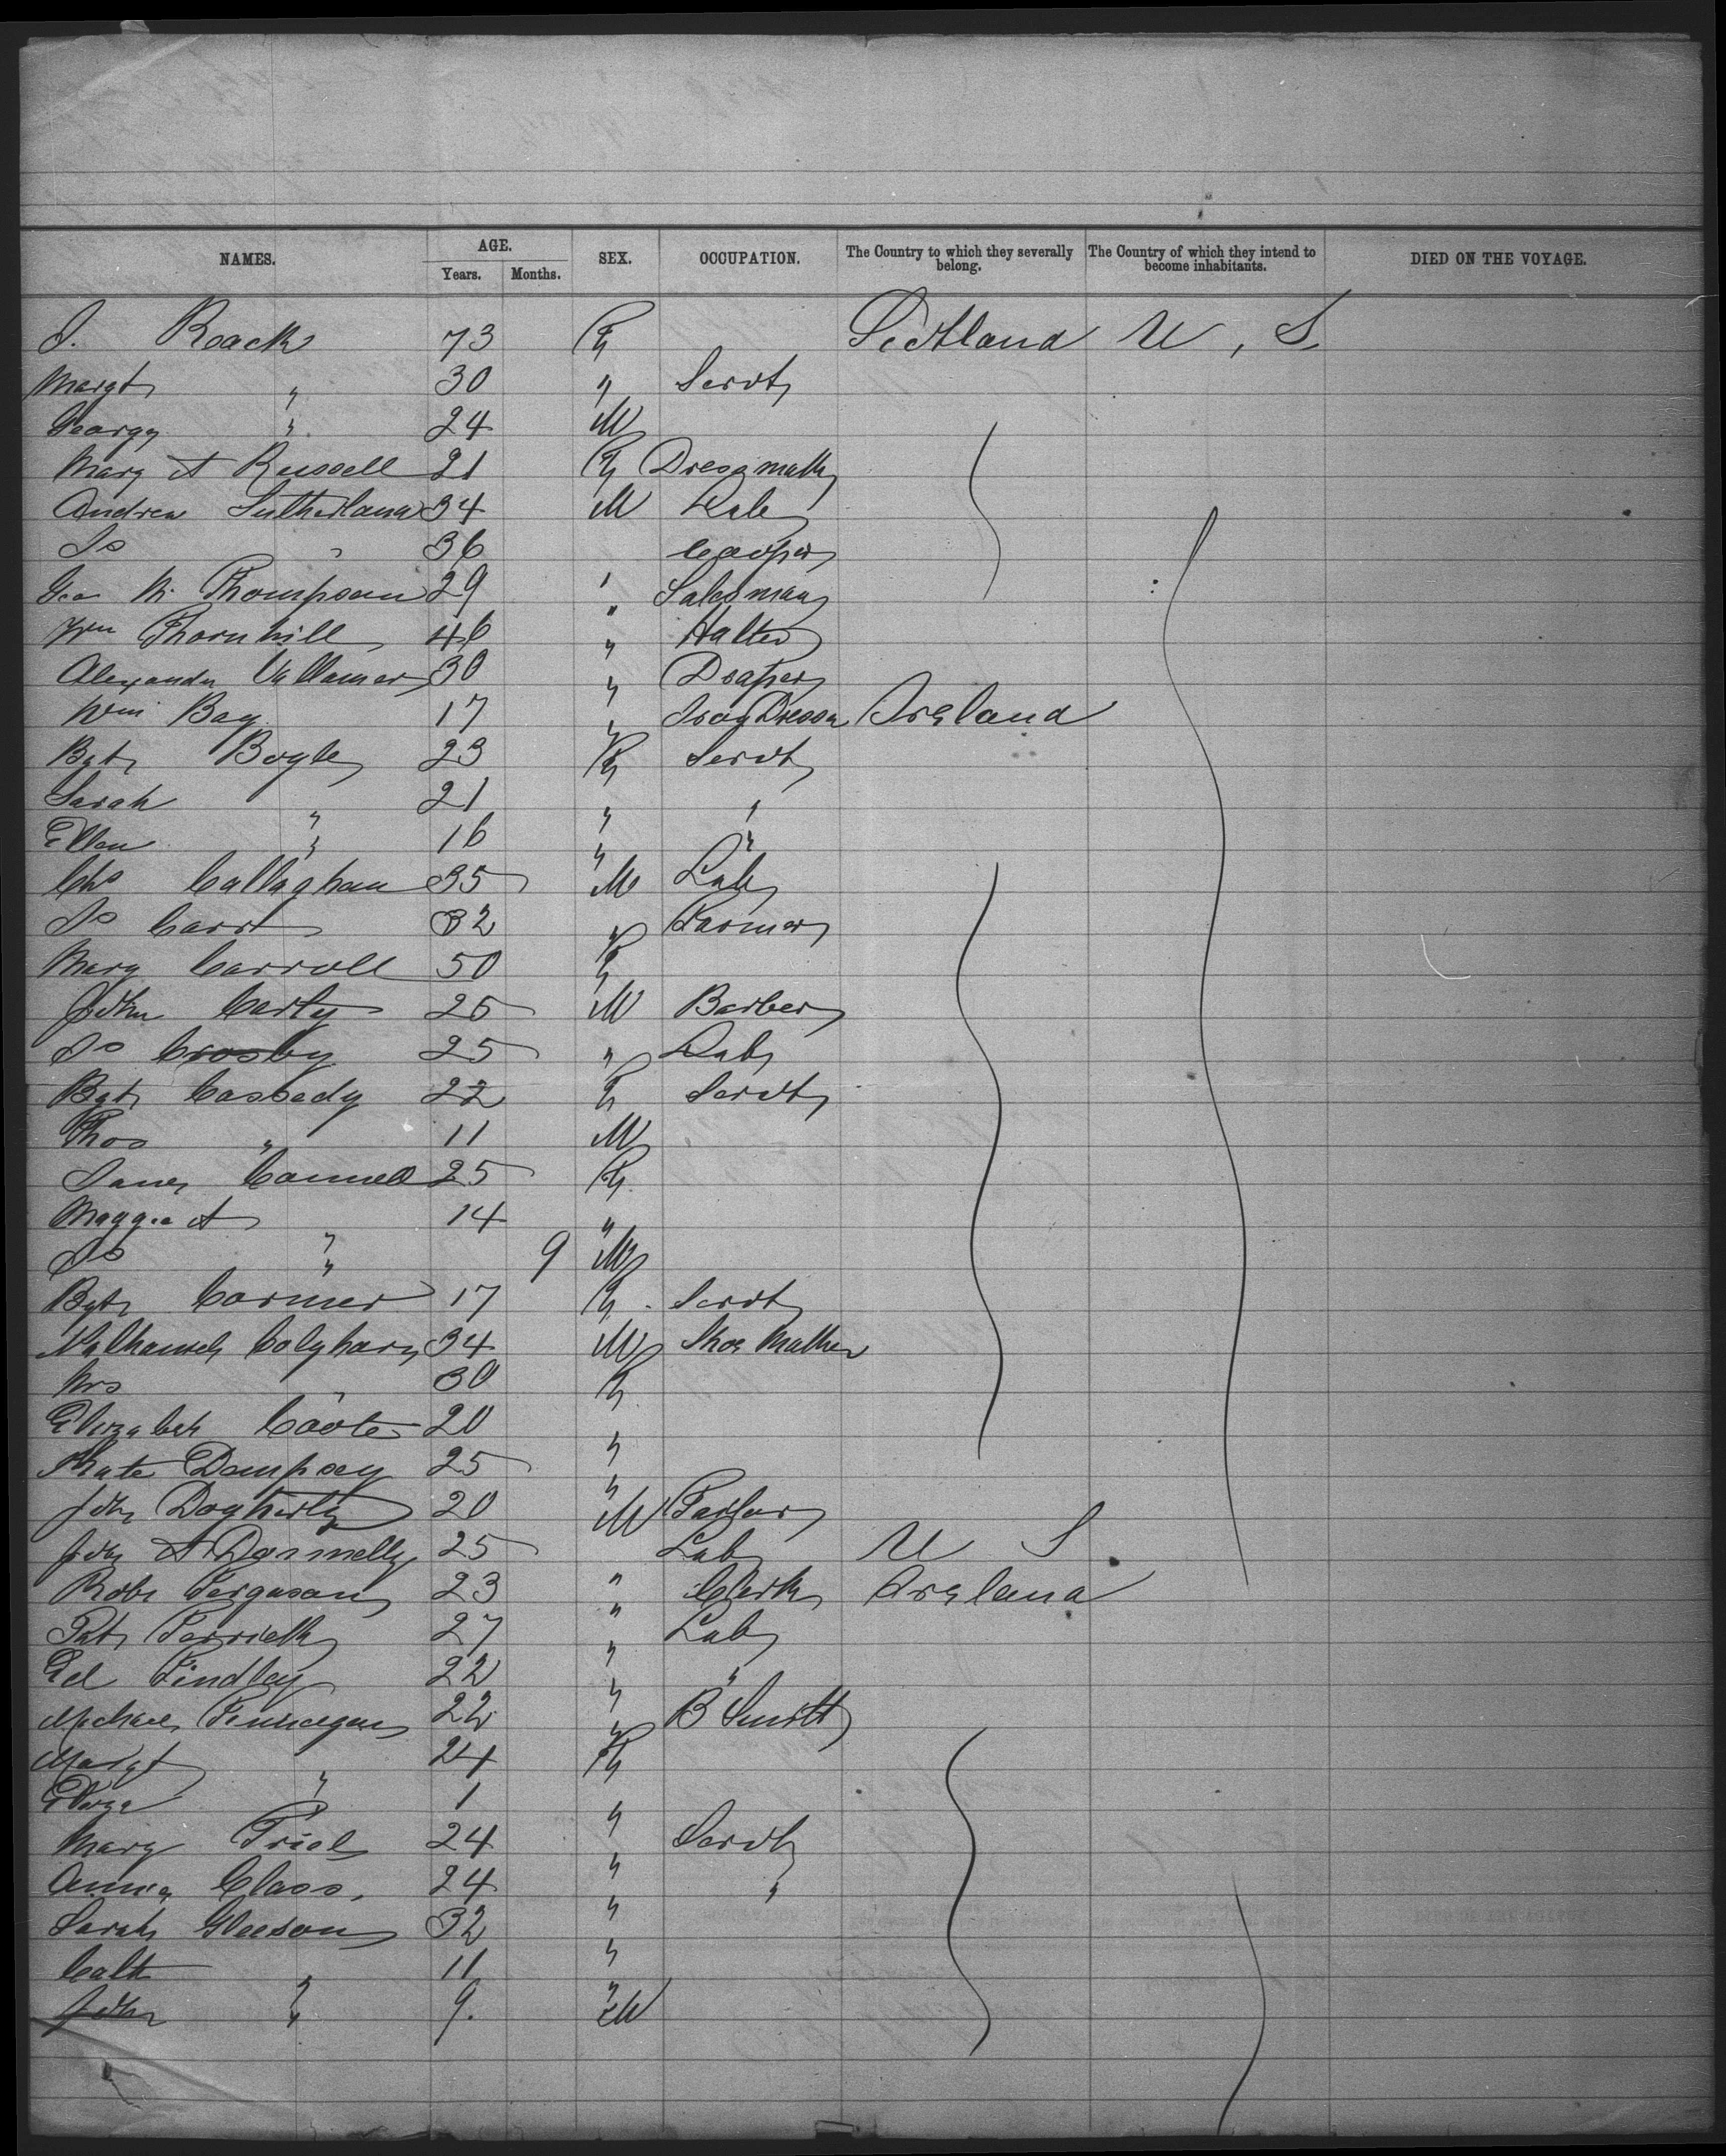 NAMES. AGE. SEX. OCCUPATION. The Country to which they severally belong. The Country of which they intend to become inhabitants. DIED ON THE VOYAGE.
Years. Months.
J. Roack 73 F Scotland U, S.
Margt " 30 " Servt
George " 24 M
Mary A Russell 21 F Dressmak
Andrew Sutherland 34 M Lab
Jo " 36 Cooper
Geo M. Thompson 29 " Salesman
Wm Thornhill 46 " Hatter
Alexander 30 " Draper
Wm Bay 17 " Dresser Ireland
Bgt Boyle 23 F Servt
Sarah " 21 " "
Ellen " 16 " "
Chs Callaghan 35 M Lab
Jo Carr 32 " Farmer
Mary Carroll 50 F
John Carty 25 M Barber
Jo Crosby 25 " Lab
Bgt Cassedy 22 F Servt
Thos " 11 M
Jane Connell 25 F
Maggie A " 14 "
Jo " 9 M
Bgt Cormer 17 F Servt
34 M Shoe Maker
Mrs " 30 F
Elizabeth Coote 20 "
Kate Dempsey 25 "
John Dogherty 20 M
John A Donnelly 25 " Lab U S.
Robt Ferguson 23 " Clerk Ireland
Pat 27 " Lab
Ed Findley 22 " "
Michael Finnegan 22 " B Smith
Margt " 24 F
Eliza " 1 "
Mary Friel 24 " Servt
Annie Class. 24 " "
Sarah Gleeson 32 "
Cath " 11 "
John " 9. M